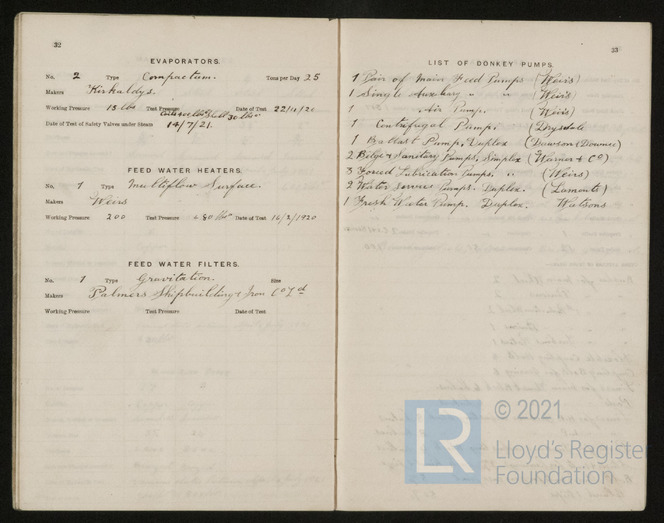 32
EVAPORATORS.
No. 2 Type Compactum. Tons per Day 25
Makers Kirkaldys.
Working Pressure 15 lbs Test Pressure Shell 30 lbs Date of Test 22/11/20
Date of Test of Safety Valves under Steam 14/7/21.
FEED WATER HEATERS.
No. 1 Type Multiflow Surface.
Makers Weirs
Working Pressure 200 Test Pressure 480 lbs Date of Test 16/2/1920
FEED WATER FILTERS.
No. 1 Type Gravitation. Size
Makers Palmers Shipbuilding & Iron Co Ld
Working Pressure Test Pressure Date of Test
33
LIST OF DONKEY PUMPS.
1 Pair of Main Feed Pumps (Weirs)
1 Single Auxiliary " " (Weirs)
1 Air Pump. (Weirs)
1 Centrifugal Pump. (Drysdale
1 Ballast Pump, Duplex (Dawson & Downie)
2 Bilge & Sanitary Pumps. Simplex (Warner & Co)
3 Forced Lubrication Pumps. " (Weirs)
2 Water Services Pumps. Duplex. (Lamonts)
1 Fresh Water Pump. Duplex. Watsons
© 2021
LR Lloyd's Register
Foundation